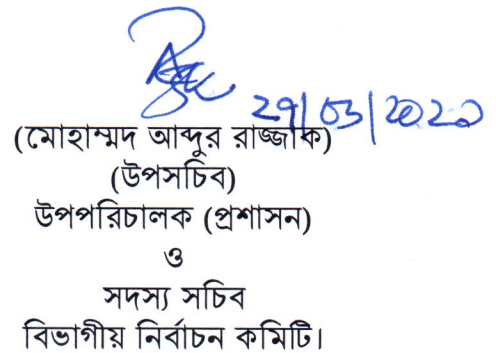 29/03/2020
(মোহাম্মদ আব্দুর রাজ্জাক)
(উপসচিব)
উপপরিচালক (প্রশাসন)
ও
সদস্য সচিব
বিভাগীয় নির্বাচন কমিটি।